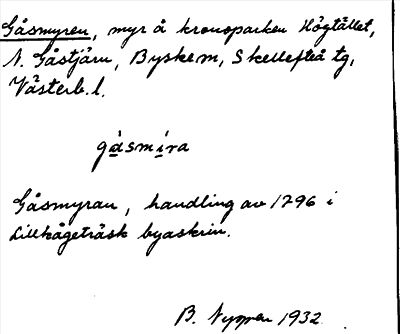 Gåsmyren, myr å kronoparken Högtållet,
N. Gåstjärn, Byske sn, Skellefteå tg,
Västerb. l.
gåsmira
Gåsmyran, handling av 1796 i
Lillkågeträsk byaskrin.
B. Nyman 1932